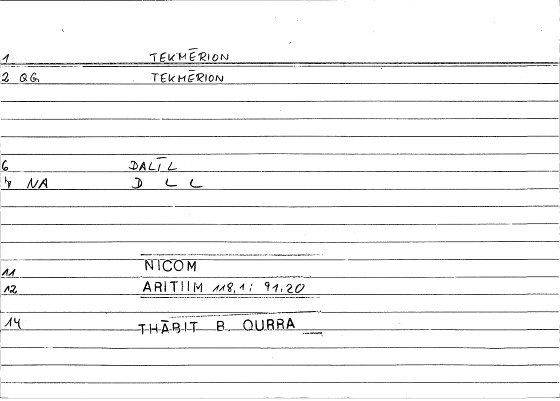 1 TEKMĒRION
2 QG TEKMĒRION
6 DALĪL
7 NA D L L
11 NICOM
12 ARITHM 118,1; 91,20
14 THĀBIT B. QURRA